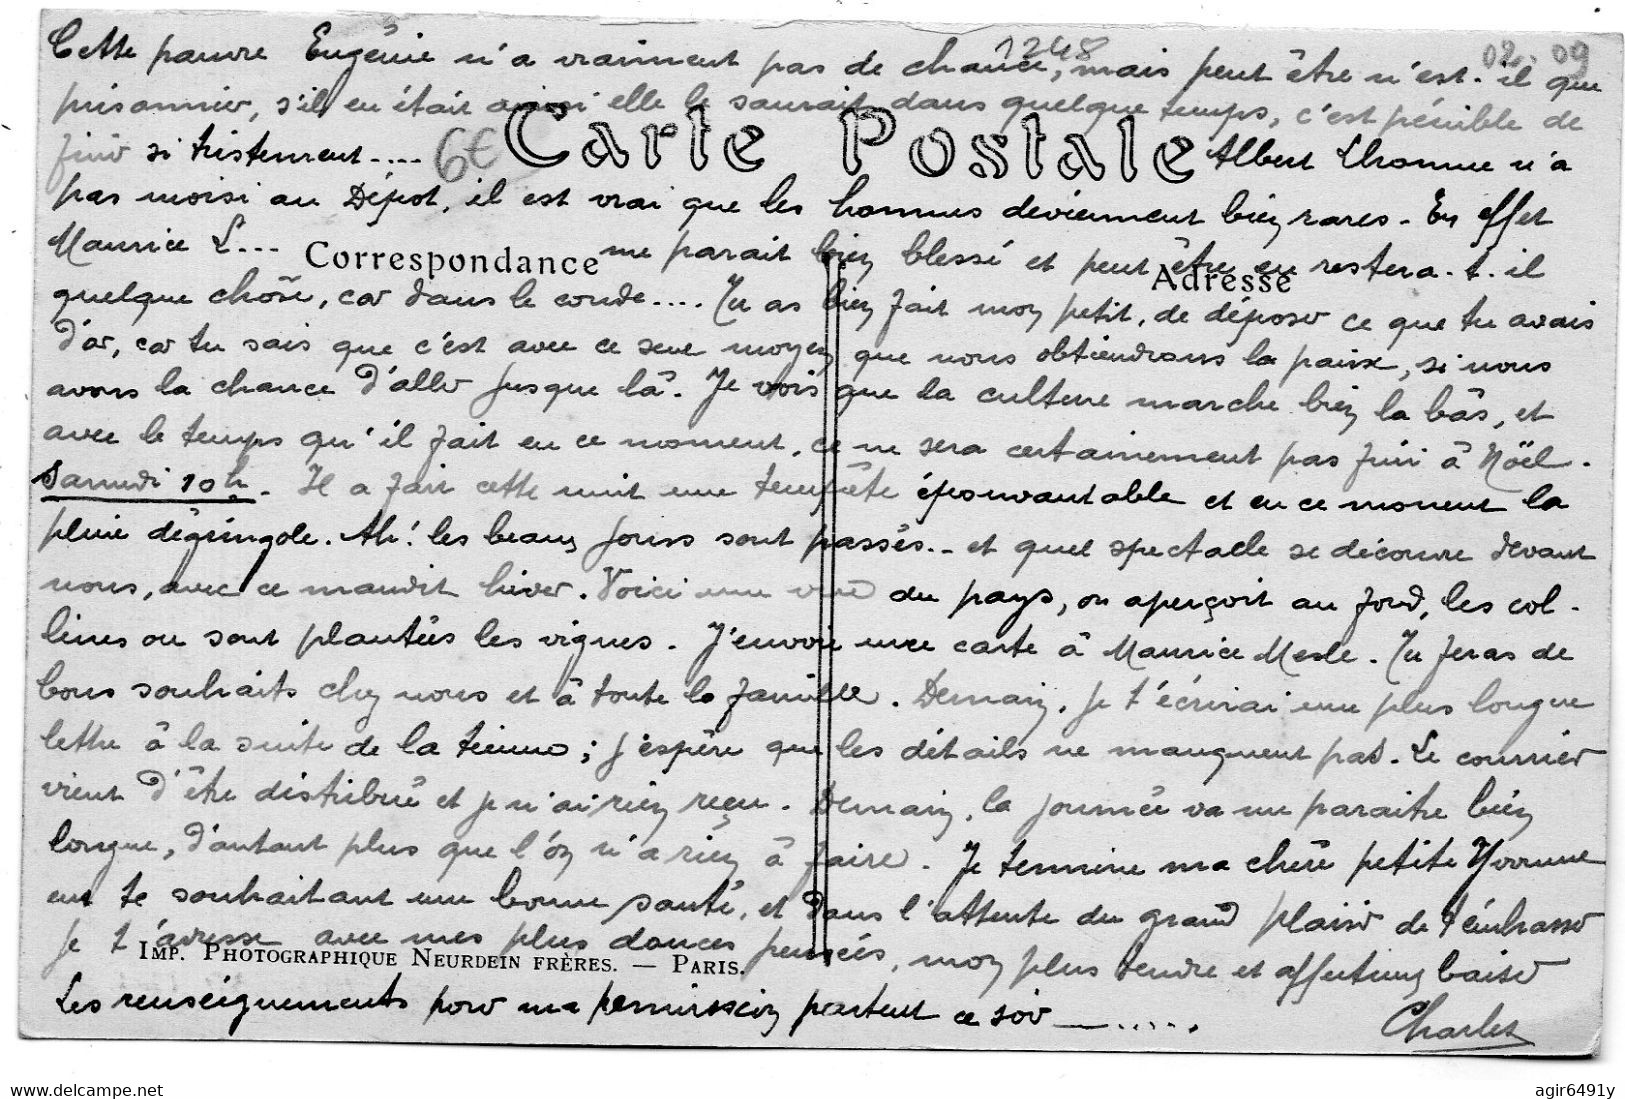 1248
02.09
Cette pauvre Eugénie n'a vraiment pas de chance, mais peut être n'est-il que
prisonnier, s'il en était ainsi elle le saurait dans quelque temps, c'est pénible de
6€ Carte Postale
finir si tristement.... Albert Lhomme n'a
pas moisi au Dépot, il est vrai que les hommes deviennent bien rares. En effet
Maurice L... me parait bien blessé et peut être en restera-t-il
Correspondance
Adresse
quelque chôse, car dans le coude.... Tu as bien fait mon petit, de déposer ce que tu avais
d'or, car tu sais que c'est avec ce seul moyen que nous obtiendrons la paix, si nous
avons la chance d'aller jusque là. Je vois que la culture marche bien là bàs, et
avec le temps qu'il fait en ce moment, ce ne sera certainement pas fini à Nöel.
Samedi 10h. Il a fait cette nuit une tempête épouvantable et en ce moment la
pluie dégringole. Ah! les beaux jours sont passés.. et quel spectacle se découvre devant
nous, avec ce maudit hiver. Voici une vue du pays, on aperçoit au fond, les col-
lines ou sont plantées les vignes. J'envoie une carte à Maurice Mesle. Tu feras de
bons souhaits chez nous et à toute la famille. Demain, je t'écrirai une plus longue
lettre à la suite de la tienne; j'espère que les détails ne manquent pas. Le courrier
vient d'être distribué et je n'ai rien reçu. Demain, la journée va me paraitre bien
longue, d'autant plus que l'on n'a rien à faire. Je termine ma chère petite Yvonne
en te souhaitant une bonne santé, et dans l'attente du grand plaisir de t'embrasser
je t'adresse avec mes plus douces pensées, mon plus tendre et affectueux baiser
IMP. PHOTOGRAPHIQUE NEURDEIN FRÈRES. — PARIS.
Les renseignements pour ma permission partent ce soir —.....
Charles
agir6491y